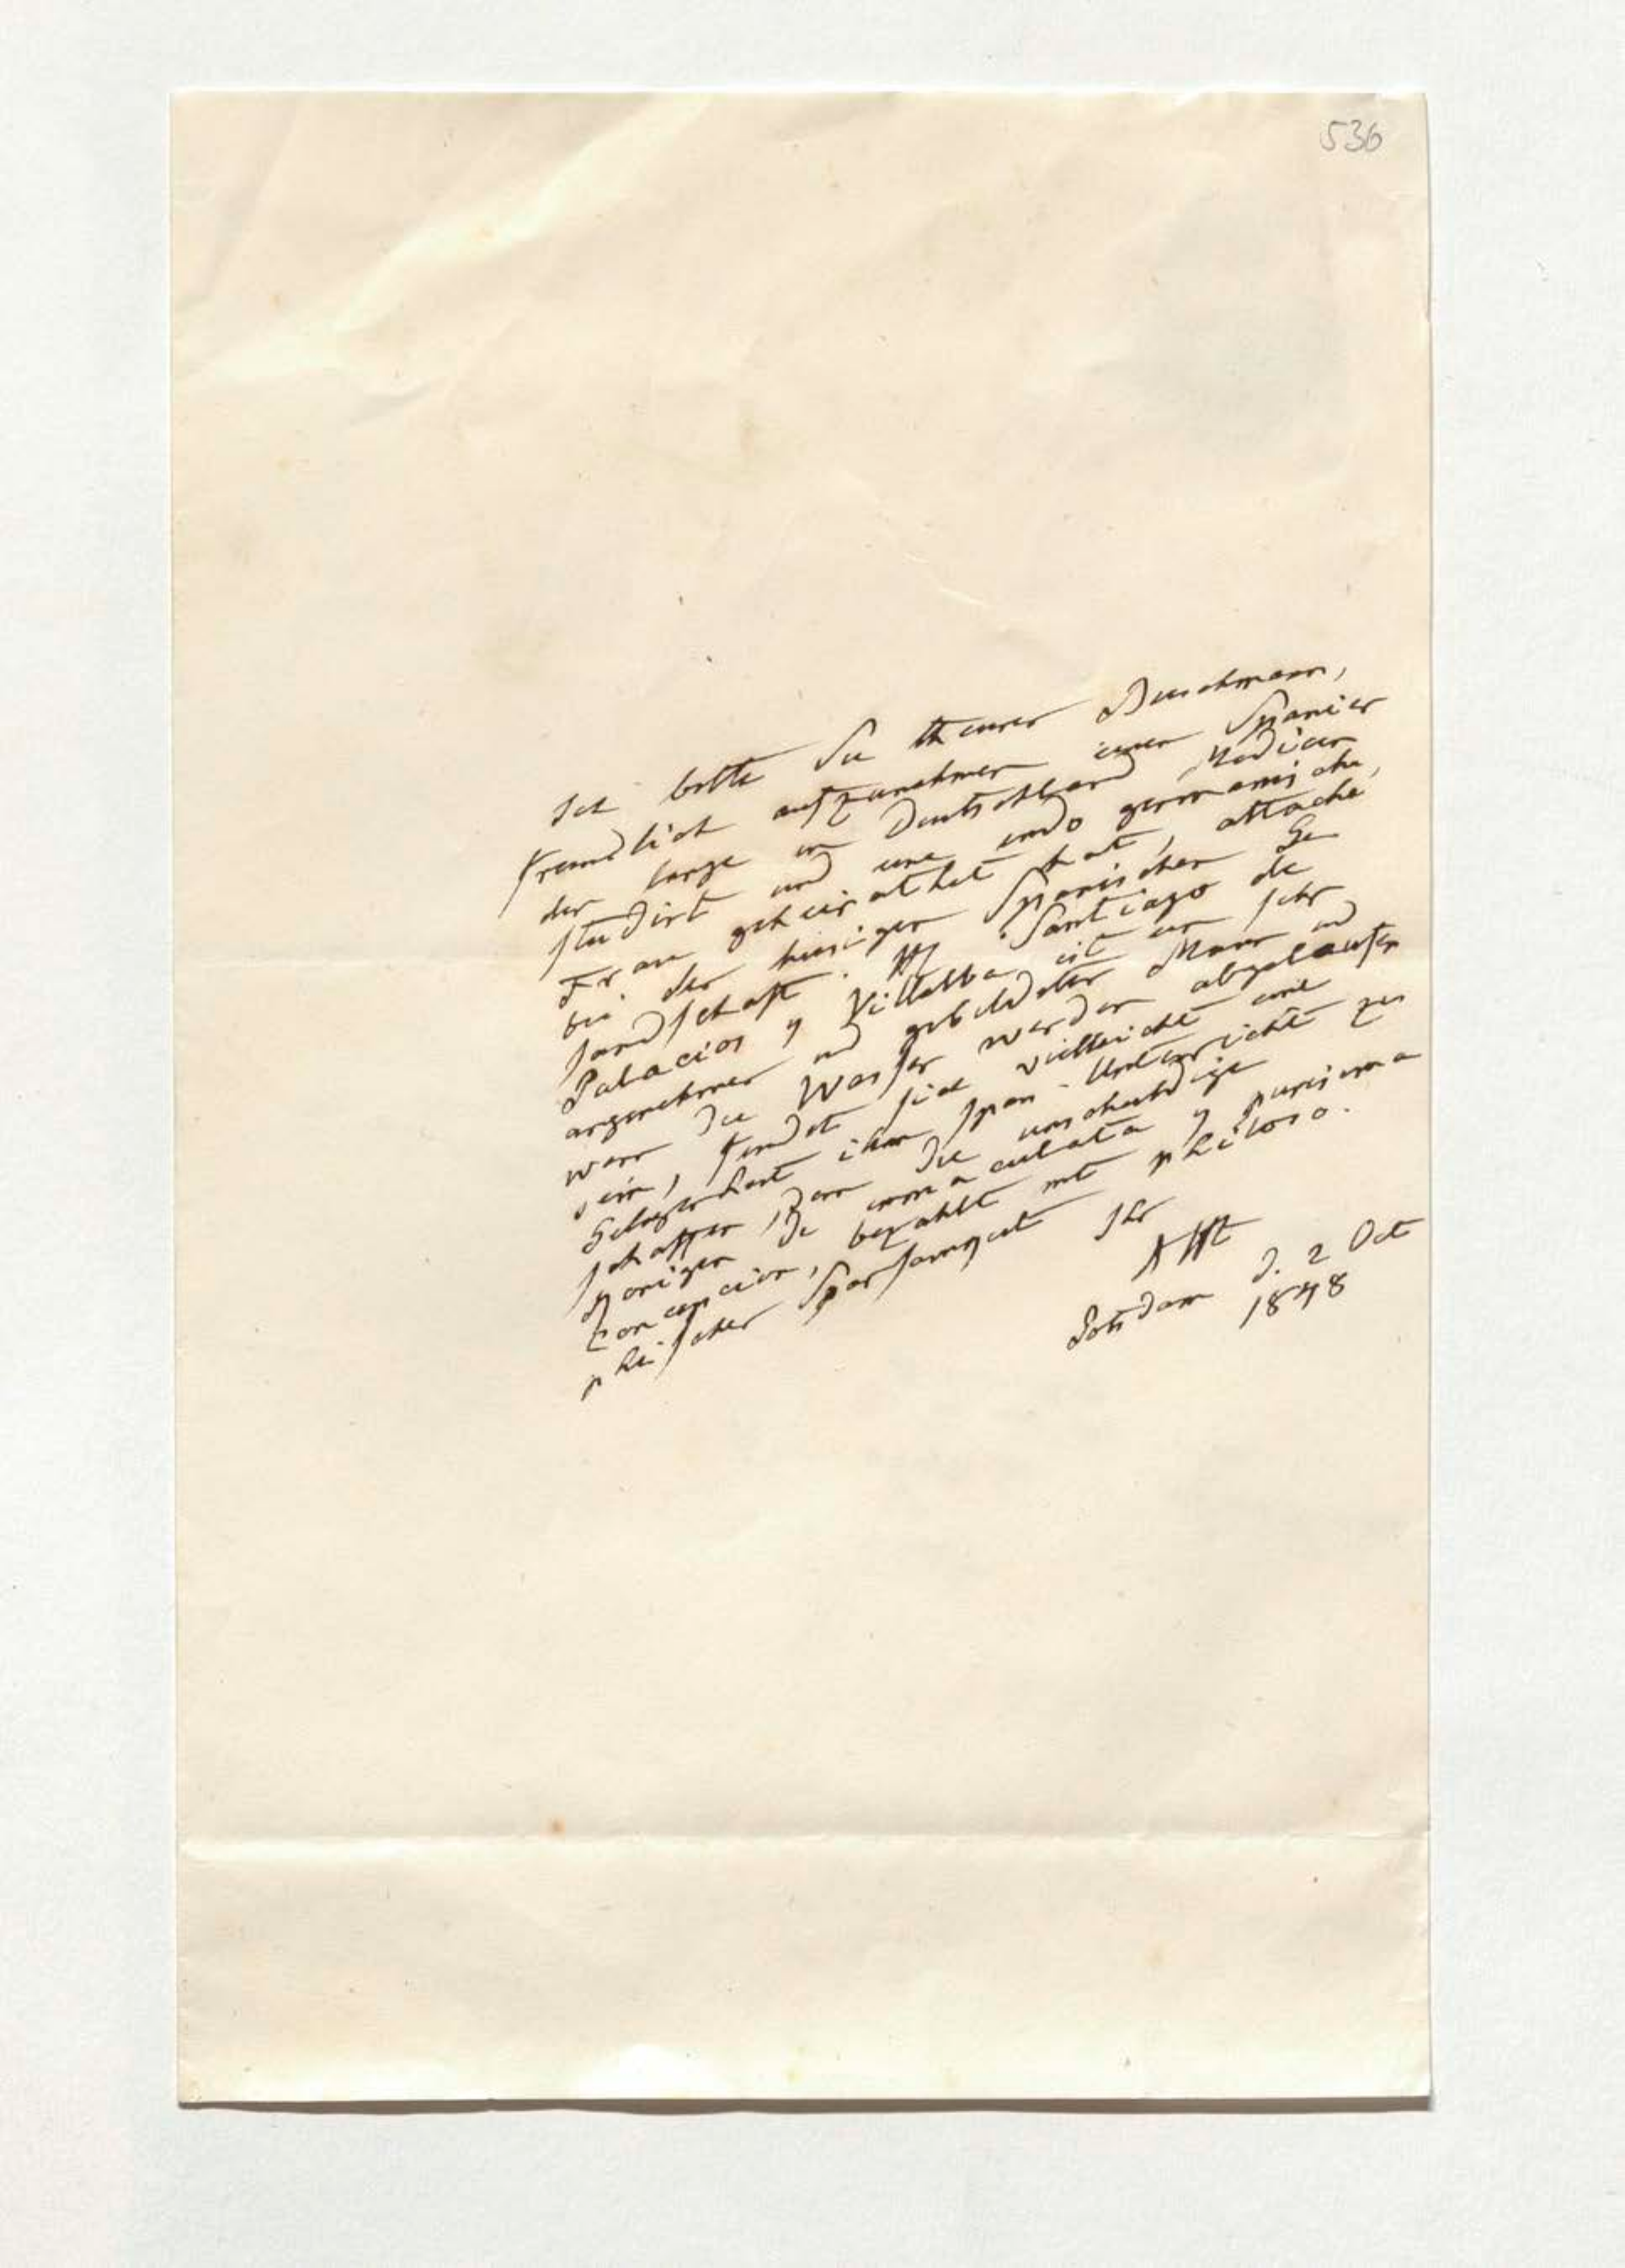 536
Ich bitte Sie theurer Buschmann,
freundlich aufzunehmen einen Spanier
der lange in Deutschland Medicin
studirt und eine indo germanische,
Frau geheirathet hat, attaché
bei der hiesigen Spanischen Ge
sandschaft. H Santiago de
Palacios y Villalba ist ein sehr
angenehmer und gebildeter Mann und
wenn die Wasser werden abgelaufen
sein, findet sich vielleicht eine
Gelegenheit ihm span. Unterricht zu
schaffen, denn die unschuldige
Spanien de immaculata y purisima
Concepcion, bezahlt mit philoso
phischer Sparsamkeit Ihr
AHt
Potsdam d. 2 Oct
1848